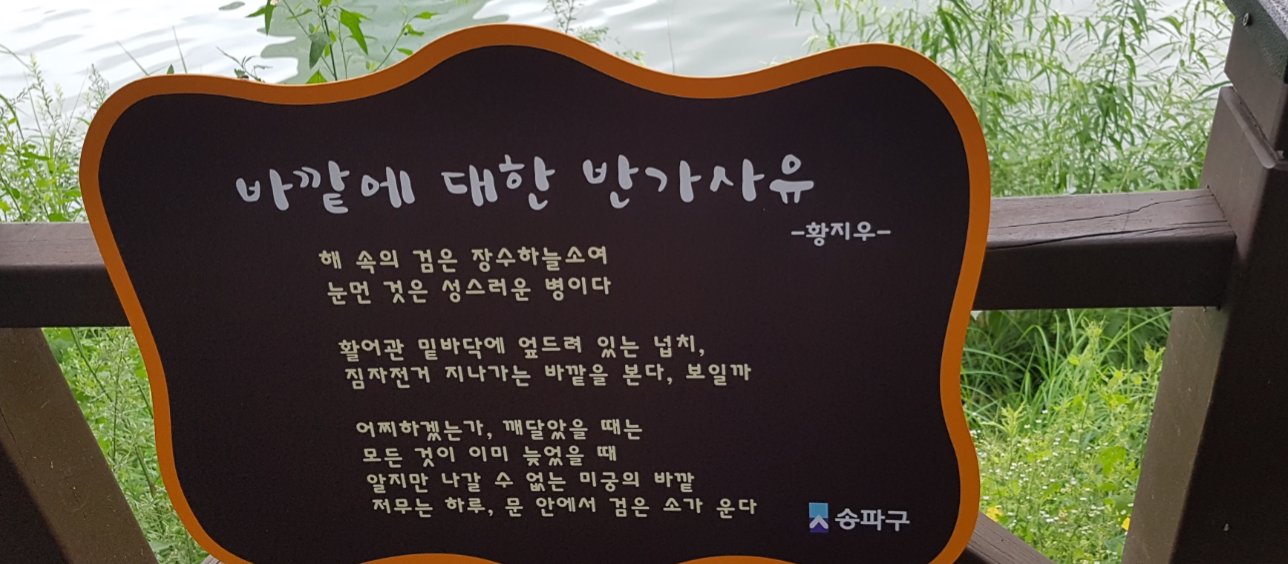 바깥에 대한 반가사유
-황지우-
해 속의 검은 장수하늘소여
눈먼 것은 성스러운 병이다
활어관 밑바닥에 엎드려 있는 넙치,
짐자전거 지나가는 바깥을 본다, 보일까
어찌하겠는가, 깨달았을 때는
모든 것이 이미 늦었을 때
알지만 나갈 수 없는 미궁의 바깥
저무는 하루, 문 안에서 검은 소가 운다
송파구